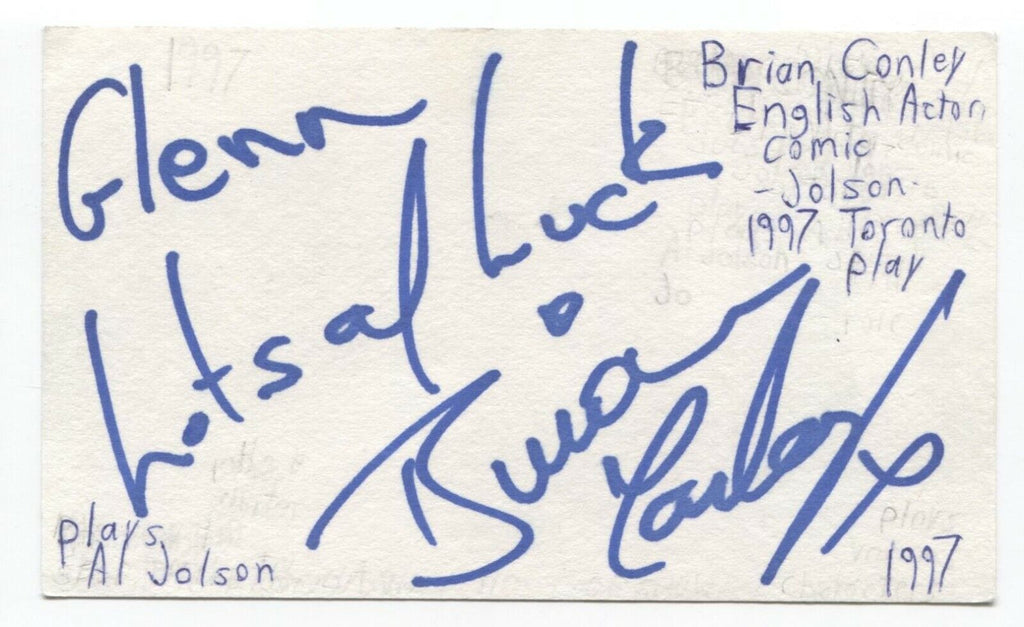 1997
Glenn
Lots of Luck
Brian Conley x
Brian Conley
English Actor,
Comic
-Jolson-
1997 Toronto
play
plays
Al Jolson
1997